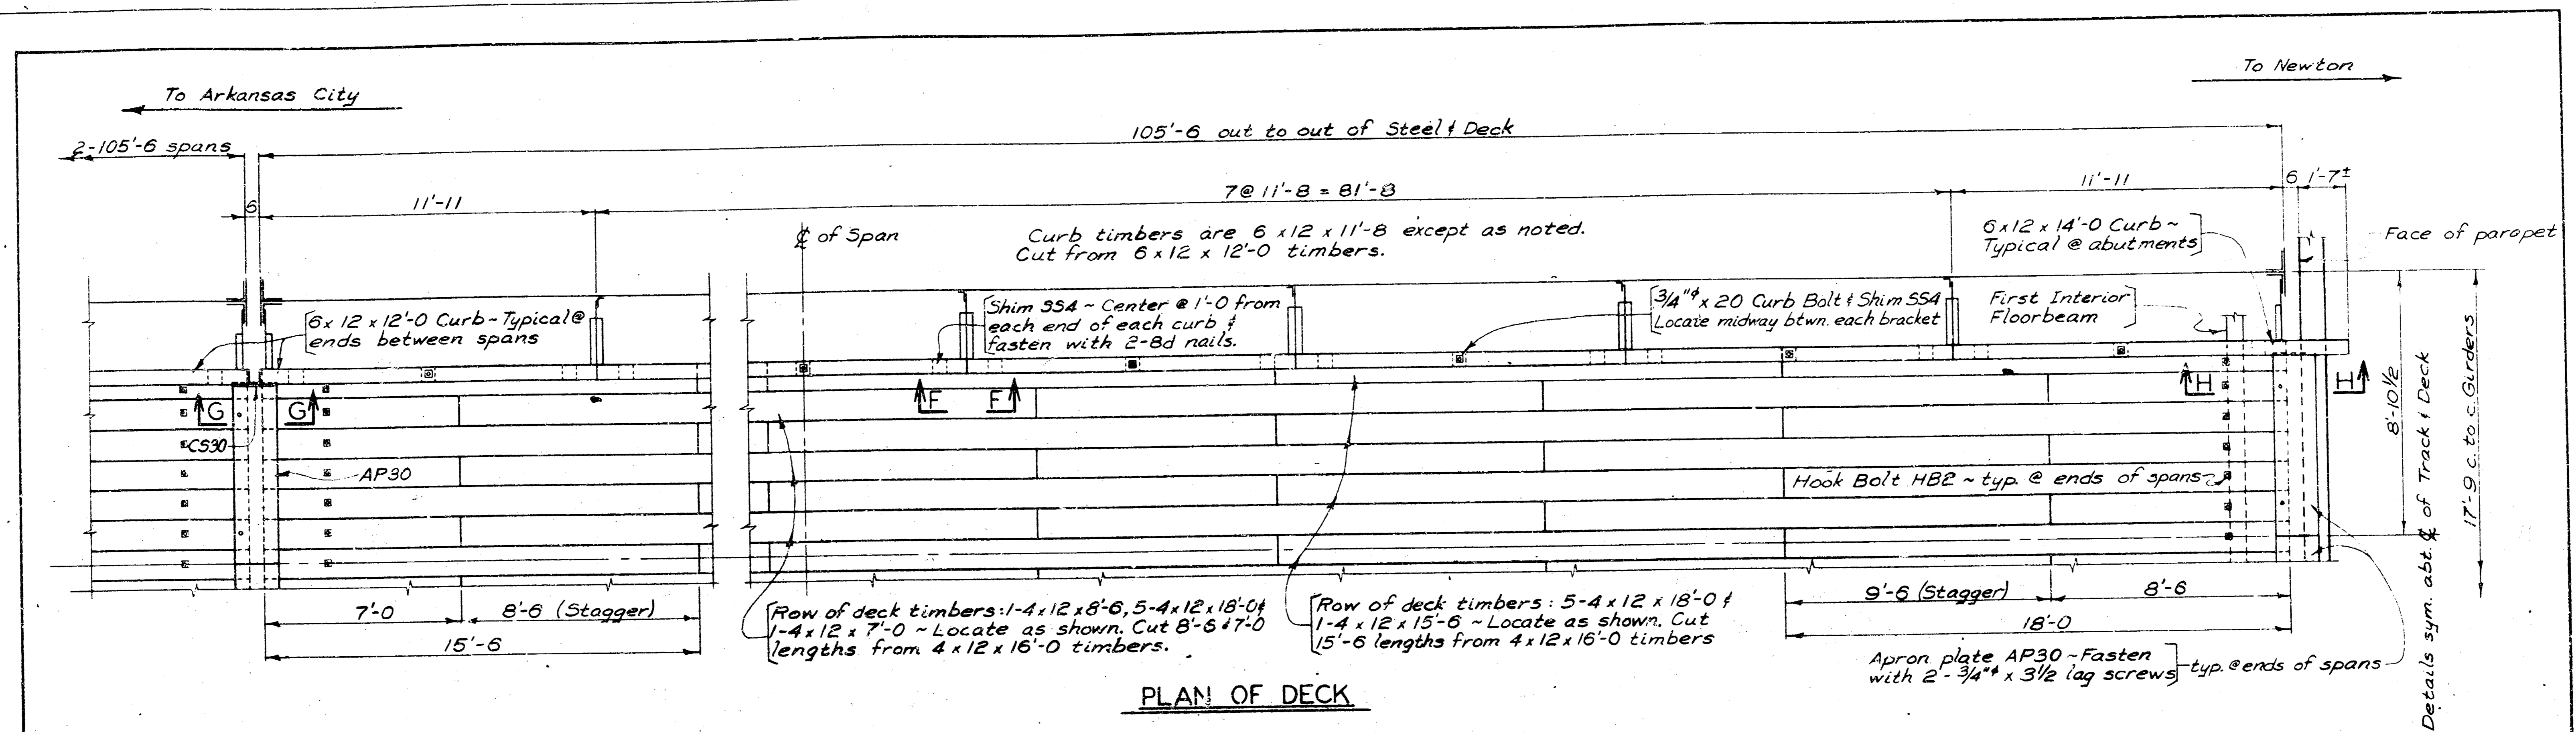 To Arkansas City
To Newton
105'-6 out to out of Steel & Deck
2-105'-6 spans
6
11'-11
7@ 11'-8 = 81'-8
11'-11
6
1'-7±
℄ of Span
Curb timbers are 6 x 12 x 11'-8 except as noted.
Cut from 6 x 12 x 12'-0 timbers.
6x12 x 14'-0 Curb ~
Typical @ abutments
Face of parapet
6x 12 x 12'-0 Curb ~ Typical @
ends between spans
Shim SS4 ~ Center @ 1'-0 from
each end of each curb &
fasten with 2-8d nails.
3/4"ϕ x 20 Curb Bolt & Shim SS4
Locate midway btwn. each bracket
First Interior
Floorbeam
G
G
F
F
H
H
CS30
AP30
Hook Bolt HB2 ~ typ. @ ends of spans
8'-10 1/2
17'-9 c. to c. Girders
Details sym. abt. ℄ of Track & Deck
7'-0
8'-6 (Stagger)
15'-6
Row of deck timbers: 1-4x12 x 8'-6, 5-4x12 x 18'-0 &
1-4x12 x 7'-0 ~ Locate as shown. Cut 8'-6 & 7'-0
lengths from 4 x 12 x 16'-0 timbers.
Row of deck timbers : 5-4 x 12 x 18'-0 &
1-4 x 12 x 15'-6 ~ Locate as shown. Cut
15'-6 lengths from 4 x 12 x 16'-0 timbers
9'-6 (Stagger)
8'-6
18'-0
Apron plate AP30 ~ Fasten
with 2 - 3/4"ϕ x 3 1/2 lag screws
typ. @ ends of spans
PLAN OF DECK